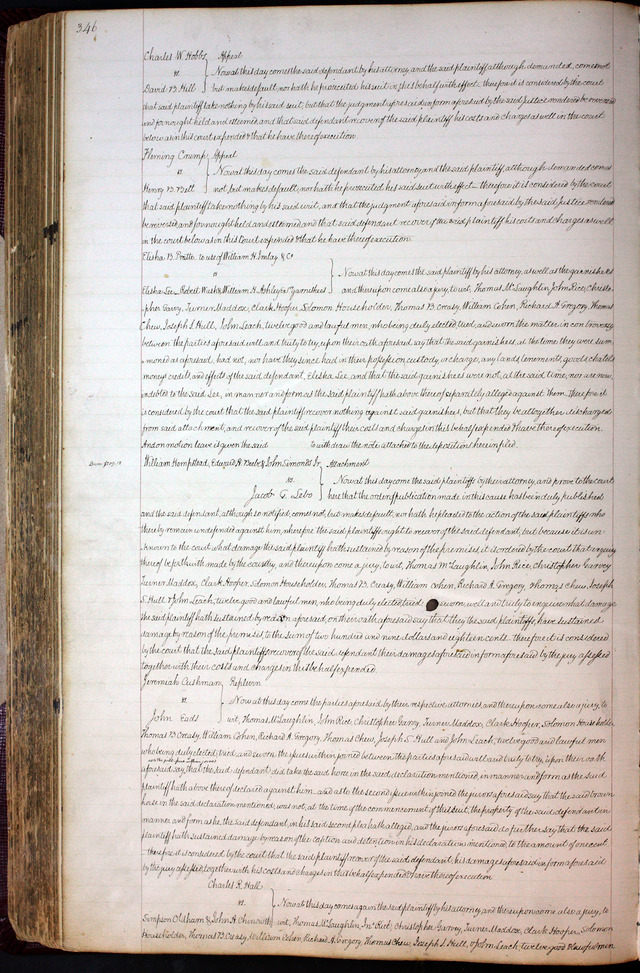 346
Charles W Hobbs Appeal
vs Now at this day comes the said defendant by his attorney, and the said plaintiff although demanded, comes not
David B Hill but makes default, nor hath he prosecuted his suit in this behalf with effect. Therefore it is considered by the court
that said plaintiff take nothing by his said suit, but that the judgment aforesaid in form aforesaid by the said Justice rendered be reversed
and for nought held and esteemed, and that said defendant recover of the said plaintiff his costs and charges as well in the court
below as in this court expended & that he have thereof execution.
Fleming Appeal
vs Now at this day comes the said defendant by his attorney and the said plaintiff, although demanded comes
Henry B. Belt not, but makes default, nor hath he prosecuted his said suit with effect— therefore it is considered by the court
that said plaintiff take nothing by his said writ, and that the judgment aforesaid in form aforesaid by the said Justice rendered
be reversed, and for nought held and esteemed and that said defendant recover of the said plaintiff his costs and charges as well
in the court below as in this Court expended & that he have thereof execution.
Elisha B. to use of William H Imlay & Co
vs Now at this day comes the said plaintiff by his attorney, as well as the garnishees
Elisha Lee, Robert Wash & William H. Ashley Garnishees and thereupon come also a jury, to wit, Thomas McLaughlin, John Rice, Christo-
pher Garvy, Turner Maddox, Clark Hooper, Solomon Householder, Thomas B. Creasy, William Cohen, Richard A. Gregory, Thomas
Chew, Joseph S. Hull, John Leach, twelve good and lawful men, who being duly elected, tried, and sworn the matter in controversy
between the parties aforesaid well and truly to try, upon their oath aforesaid, say that the said garnishees, at the time they were sum-
moned as aforesaid, had not, nor have they since had in their possession custody or charge, any lands tenements, goods chattels
moneys credits, and effects of the said defendant, Elisha Lee, and that the said garnishees were not, at the said time, nor are now,
indebted to the said Lee, in manner and form as the said plaintiff hath above thereof separately alleged against them. Therefore it
is considered by the court that the said plaintiff recover nothing against said garnishees, but that they be altogether discharged
from said attachment, and recover of the said plaintiff their costs and charges in this behalf expended & have thereof execution.
And on motion leave is given the said to withdraw the note attached to the depositions herein filed.
William Hempstead, Edward H. Beebe & John Simonds Jr. Attachment
vs. Now at this day come the said plaintiffs by their attorney, and prove to the court
Jacob C. Lebo here that the order of publication made in this cause has been duly published
and the said defendant, although so notified, comes not, but makes default, nor hath he pleaded to the action of the said plaintiffs who
thereby remain undefended against him, wherefore the said plaintiffs ought to recover of the said defendant, but because it is un-
known to the court what damage the said plaintiff hath sustained by reason of the premises, it is ordered by the court that enquiry
thereof be forthwith made by the country, and thereupon come a jury, to wit, Thomas McLaughlin, John Rice, Christopher Garvy
Turner Maddox, Clark Hooper, Solomon Householder, Thomas B. Creasy, William Cohen, Richard A. Gregory, Thomas Chew, Joseph
S. Hull & John Leach, twelve good and lawful men, who being duly elected tried sworn, well and truly to enquire what damage
the said plaintiff hath sustained by reason aforesaid, on their oath aforesaid say that they the said plaintiffs, have sustained
damage by reason of the premises, to the sum of two hundred and nine dollars and eighteen cents. therefore it is considered
by the court that the said plaintiffs recover of the said defendant their damages aforesaid in form aforesaid by the jury assessed
together with their costs and charges in this behalf expended.
Jeremiah Cushman Replevin
vs. Now at this day come the parties aforesaid by their respective attornies and thereupon come also a jury, to
John Eads wit, Thomas McLaughlin, John Rice, Christopher Garvy, Turner Maddox, Clark Hooper, Solomon Householder
Thomas B. Creasy, William Cohen, Richard A. Gregory, Thomas Chew, Joseph S. Hull and John Leach, twelve good and lawful men
who being duly elected, tried, and sworn the issues within joined between the parties aforesaid well and truly to try, upon their oath
aforesaid say, that the said defendant did take the said horse in the said declaration mentioned, in manner and form as the said
plaintiff hath above thereof declared against him. and as to the second issue within joined the jurors aforesaid say that the said brown
horse in the said declaration mentioned, was not, at the time of the commencement of this suit, the property of the said defendant in
manner and form as he, the said defendant, in his said second plea hath alleged, and the jurors aforesaid do further say that the said
plaintiff hath sustained damage by reason of the caption and detention in his declaration mentioned to the amount of one cent.
therefore it is considered by the court that the said plaintiff recover of the said defendant his damages aforesaid in form aforesaid
by the jury assessed, together with his costs and charges in this behalf expended & have thereof execution
Charles R. Hall
vs. Now at this day comes again the said plaintiff by his attorney and thereupon come also a jury, to
Simpson Oldham & John H. Chenowith wit, Thomas McLaughlin, Jno Rice, Christopher Garvy, Turner Maddox, Clark Hooper, Solomon
Householder, Thomas B. Creasy, William Cohen, Richard A. Gregory, Thomas Chew, Joseph S. Hull, & John Leach, twelve good & lawful men